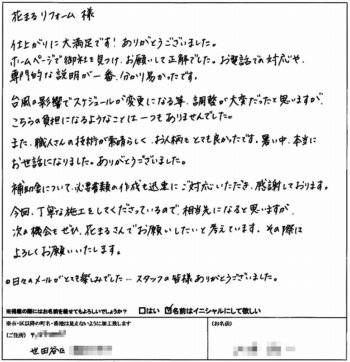 花まるリフォーム 様
仕上がりに大満足です！ありがとうございました。
ホームページで御社を見つけ、お願いして正解でした。お電話での対応や、
専門的な説明が一番、分かり易かったです。
台風の影響でスケジュールが変更になる等、調整が大変だったと思いますが、
こちらの負担になるようなことは一つもありませんでした。
また、職人さんの技術が素晴らしく、お人柄もとても良かったです。暑い中、本当に
お世話になりました。ありがとうございました。
補助金について、必要書類の作成も迅速にご対応いただき、感謝しております。
今回、丁寧な施工をしてくださっているので、相当先になると思いますが、
次の機会もぜひ、花まるさんでお願いしたいと考えています。その際は
よろしくお願いいたします。
○日々のメールがとても楽しみでした…スタッフの皆様ありがとうございました。
※掲載の際にはお名前を載せてもよろしいでしょうか？ □はい ☑名前はイニシャルにして欲しい
※市・区以降の町名・番地は見えないように加工致します
（ご住所） 〒
（お名前）
世田谷区